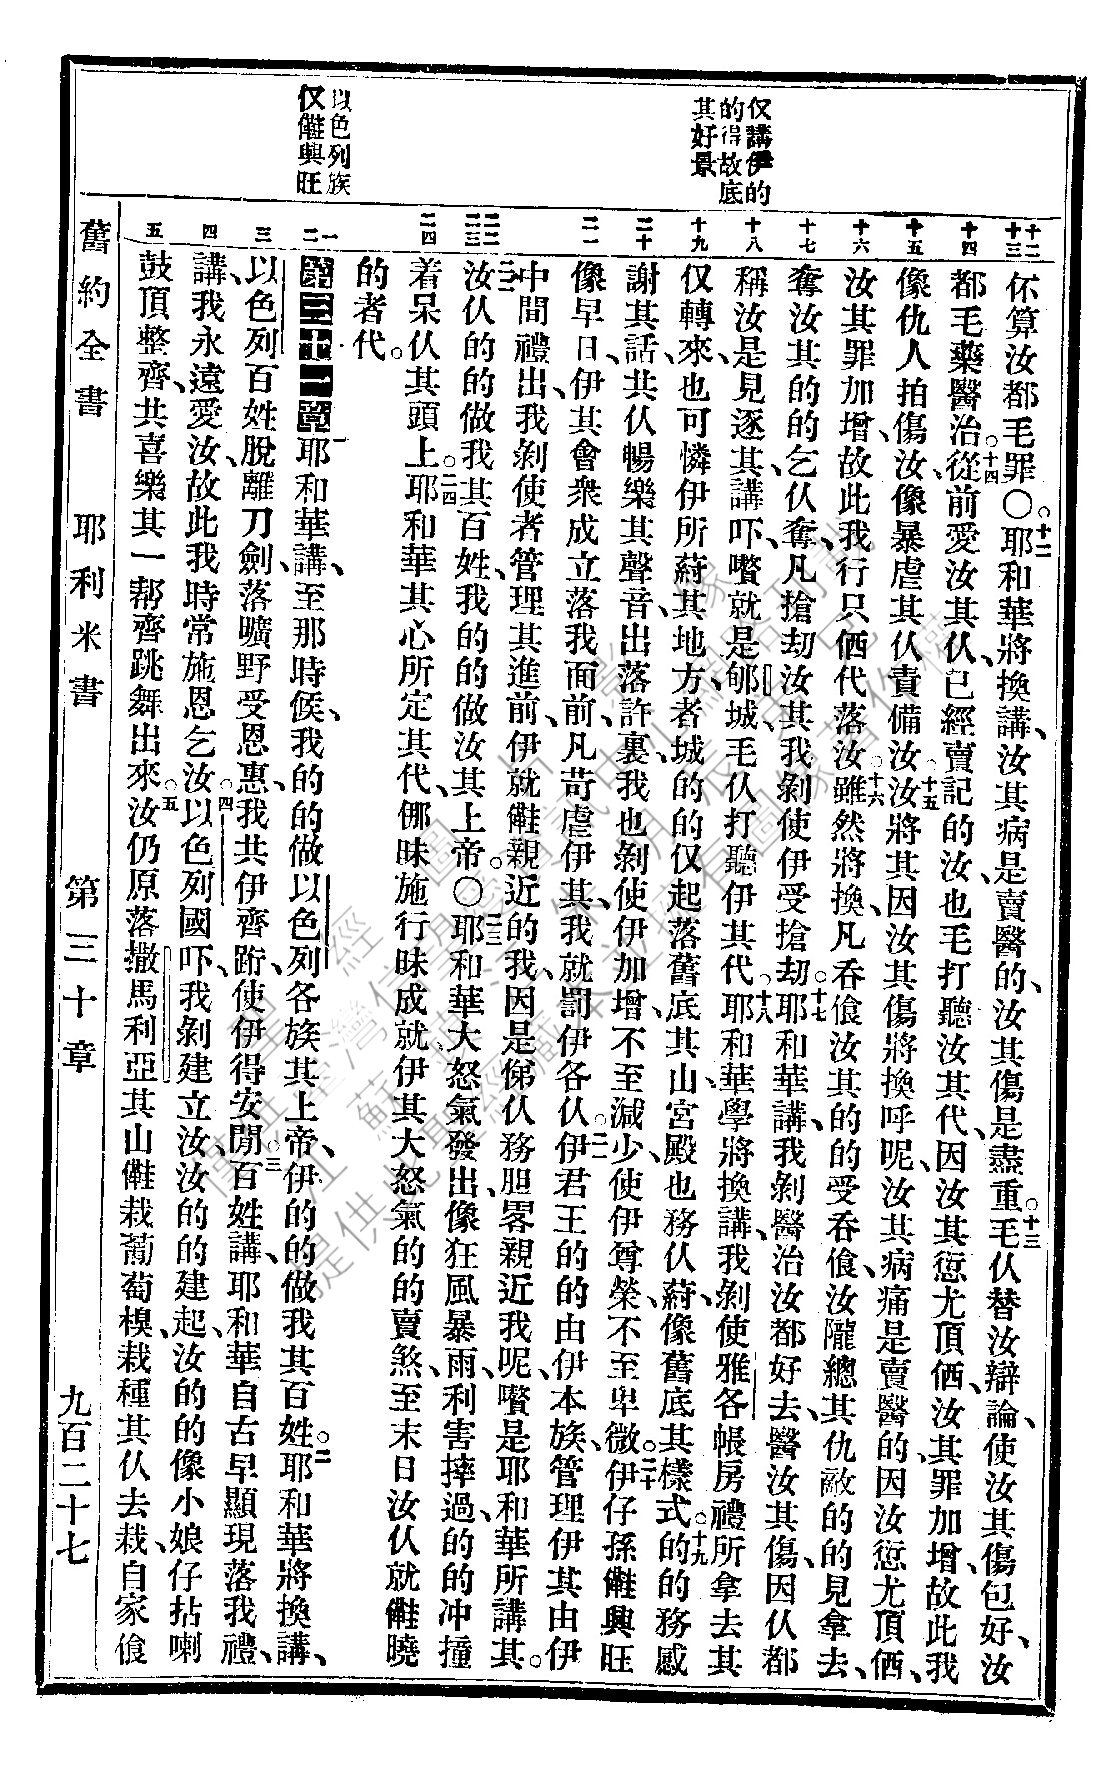 仅講伊的
的得故底
其好景
以色列族
仅儺興旺
十二
十三
十四
十五
十六
十七
十八
十九
二十
二一
二二
二三
二四
一
二
三
四
五
伓算汝都毛罪。○十二耶和華將換講、汝其病是賣醫的、汝其傷是盡重。十三毛仈替汝辯論、使汝其傷包好、汝
都毛藥醫治。十四從前愛汝其仈、已經賣記的汝、也毛打聽汝其代、因汝其愆尤頂価、汝其罪加增、故此我
像仇人拍傷汝、像暴虐其仈責備汝。十五汝將其因汝其傷將換呼呢、汝其病痛是賣醫的、因汝愆尤頂価、
汝其罪加增、故此我行只価代落汝。十六雖然將換、凡吞飡汝其的的受吞飡、汝隴總其仇敵的的見拿去、
奪汝其的的乞仈奪、凡搶刧汝其我剝使伊受搶刧。十七耶和華講、我剝醫治汝都好去、醫汝其傷、因仈都
稱汝是見逐其、講吓、嚽就是郇城、毛仈打聽伊其代。十八耶和華學將換講、我剝使雅各帳房禮所拿去其
仅轉來、也可憐伊所蒔其地方、者城的的仅起落舊底其山、宮殿也務仈蒔、像舊底其樣式。十九的的務感
謝其話、共仈暢樂其聲音、出落許裏、我也剝使伊加增、不至減少、使伊尊榮、不至卑微。二十伊仔孫儺興旺
像早日、伊其會衆成立落我面前、凡苛虐伊其、我就罰伊各仈。二一伊君王的的由伊本族、管理伊其由伊
中間禮出、我剝使者管理其進前、伊就儺親近的我、因是俤仈務胆畧親近我呢、嚽是耶和華所講其。
二二汝仈的的做我其百姓、我的的做汝其上帝。○二三耶和華大怒氣發出、像狂風暴雨、利害摔過、的的冲撞
着呆仈其頭上。二四耶和華其心所定其代、㑚昧施行、昧成就、伊其大怒氣的的賣煞、至末日汝仈就儺曉
的者代。
第三十一章 一耶和華講、至那時候、我的的做以色列各族其上帝、伊的的做我其百姓。二耶和華將換講、
以色列百姓脫離刀劍、落曠野受恩惠、我共伊齊跡、使伊得安閒。三百姓講、耶和華自古早顯現落我禮、
講、我永遠愛汝、故此我時常施恩乞汝。四以色列國吓、我剝建立汝、汝的的建起、汝的的像小娘仔拈喇
鼓頂整齊、共喜樂其一帮齊跳舞出來。五汝仍原落撒馬利亞其山儺栽葡萄模、栽種其仈去栽、自家飡
舊約全書 耶利米書 第三十章 九百二十七